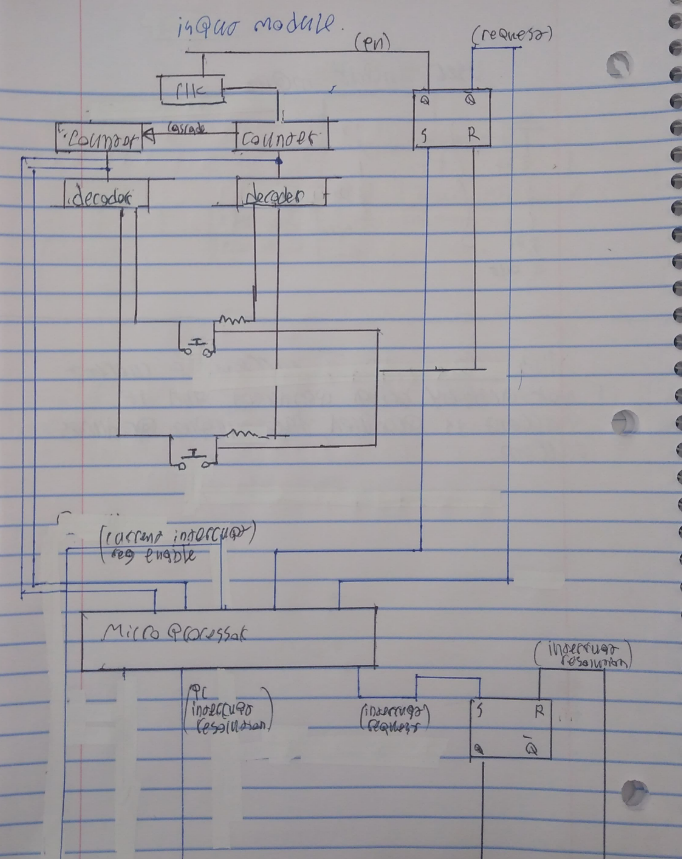 input module.
(en)
(request)
clk
Q Q̄
counter
cascade
counter
S R
decoder
decoder
(current interrupt
reg enable
Micro processor
(PC
interrupt
resolution)
(interrupt
request)
(interrupt
resolution)
S R
Q Q̄